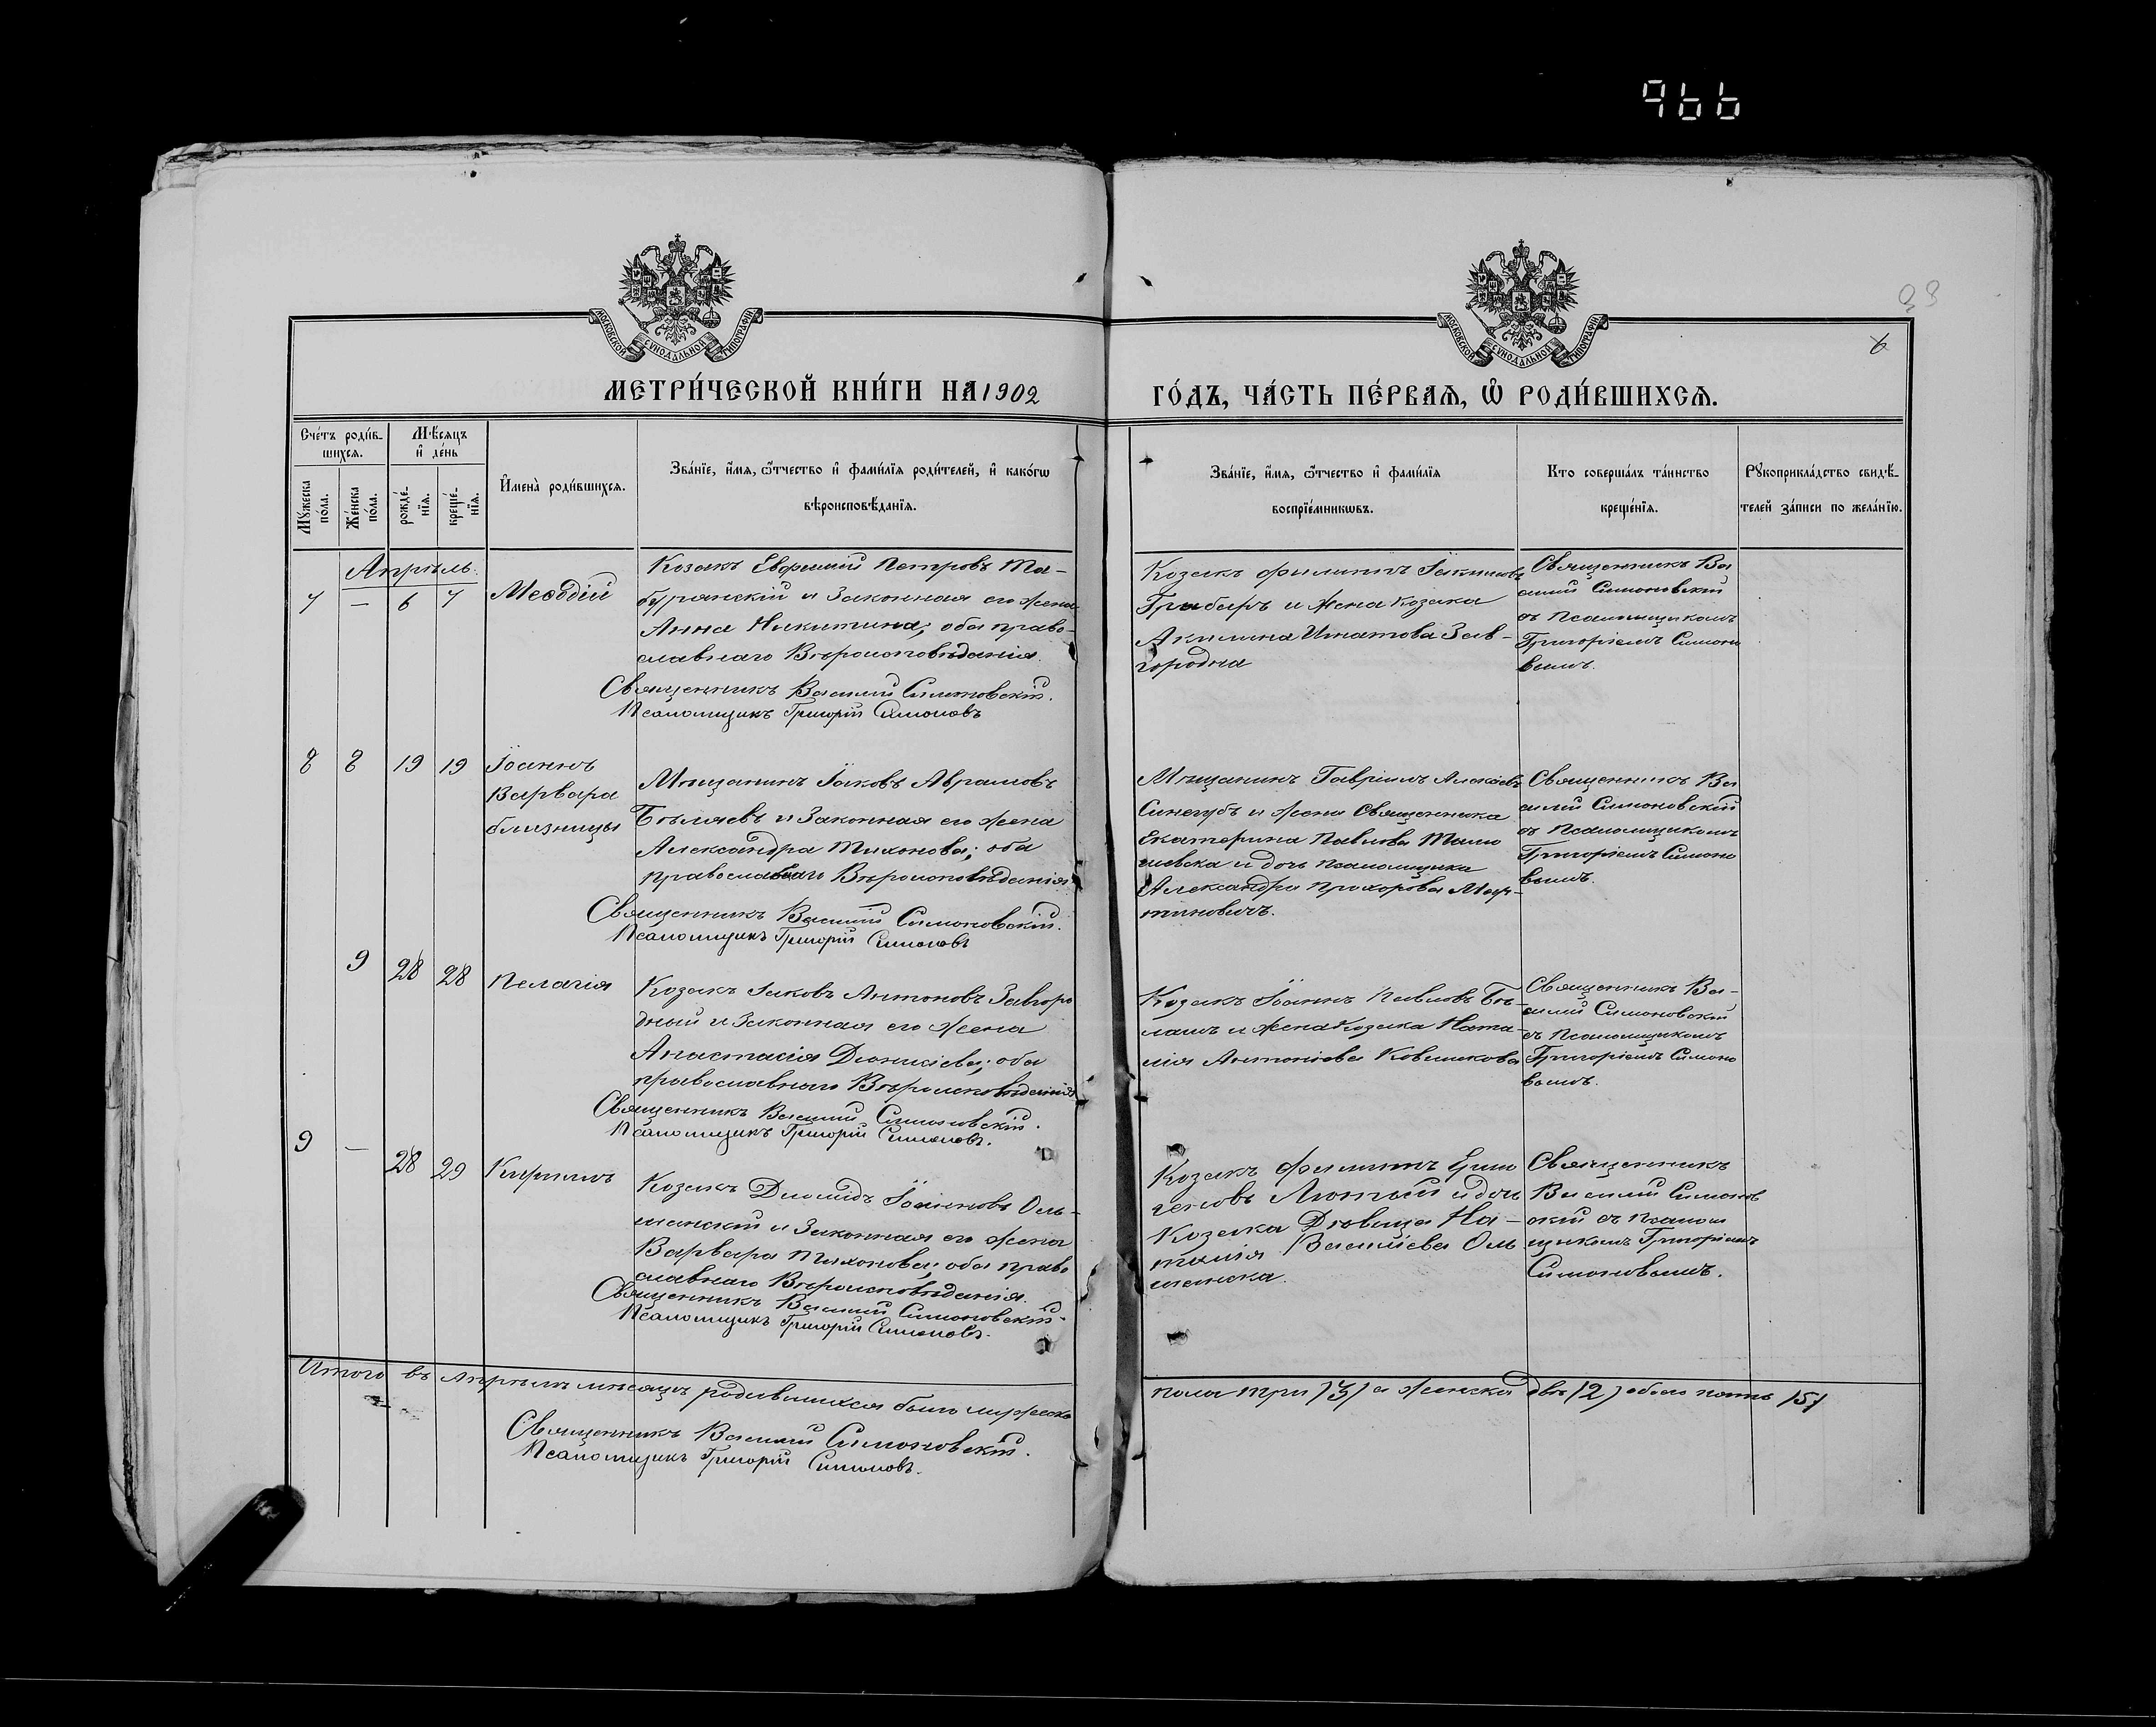 966
38
6
МОСКОВСКОЙ СѴНОДАЛЬНОЙ ТИПОГРАФІИ
МОСКОВСКОЙ СѴНОДАЛЬНОЙ ТИПОГРАФІИ
МЕТРИ́ЧЕСКОЙ КНИ́ГИ НА 1902
ГО́ДЪ, ЧА́СТЬ ПЕ́РВАѦ, Ѡ҆ РОДИ́ВШИХСѦ.
Сче́тъ роди́в-
шихсѧ.
Мꙋ́жеска
по́ла.
Же́нска
по́ла.
Мѣ́сѧцъ
и҆ де́нь
рожде́-
нїѧ.
креще́-
нїѧ.
И҆мена̀ роди́вшихсѧ.
Зва́нїе, и҆́мѧ, ѻ҆́тчество и҆ фами́лїѧ роди́телей, и҆ како́гѡ
вѣроисповѣ́данїѧ.
Зва́нїе, и҆́мѧ, ѻ҆́тчество и҆ фами́лїѧ
воспрїе́мникѡвъ.
Кто̀ соверша́лъ та́инство
креще́нїѧ.
Рꙋкоприкла́дство свидѣ́-
телей за́писи по жела́нїю.
Апрѣль.
7 — 6 7 Меѳодій
Козакъ Евфимій Петровъ Та-
буранскій и законная его жена
Анна Никитина; оба право-
славнаго Вѣроисповѣданія.
Священникъ Василій Симоновскій.
Псаломщикъ Григорій Симоновъ
Козакъ Филиппъ Іакимовъ
Грибаръ и жена козака
Акилина Игнатова Зав-
городня
Священникъ Ва
силій Симоновскій
съ Псаломщикомъ
Григоріемъ Симоно
вымъ.
8 8 19 19 Іоаннъ
Варвара
близнецы
Мѣщанинъ Іаковъ Аврамовъ
Бѣляевъ и законная его жена
Александра Тихонова; оба
православнаго Вѣроисповѣданія
Священникъ Василій Симоновскій.
Псаломщикъ Григорій Симоновъ
Мѣщанинъ Гавріилъ Алексѣевъ
Синегубъ и жена Священника
Екатерина Павлова Тимо
шевска и дочь псаломщика
Александра Прохорова Мар-
тиновичъ.
Священникъ Ва
силій Симоновскій
съ Псаломщикомъ
Григоріемъ Симоно
вымъ.
9 28 28 Пелагія
Козакъ Іаковъ Антоновъ Завгоро
дный и законная его жена
Анастасія Діонисіева; оба
православнаго Вѣроисповѣданія
Священникъ Василій Симоновскій.
Псаломщикъ Григорій Симоновъ.
Козакъ Іоаннъ Павловъ Бѣ-
лашъ и жена козака Ната-
лія Антоніева Ковшикова
Священникъ Ва-
силій Симоновскій
съ Псаломщикомъ
Григоріемъ Симоно
вымъ.
9 — 28 29 Кириллъ
Козакъ Діомидъ Іоанновъ Оль-
шанскій и законная его жена
Варвара Тихонова; оба право
славнаго Вѣроисповѣданія.
Священникъ Василій Симоновскій.
Псаломщикъ Григорій Симоновъ.
Козакъ Филиппъ
Лютый и дочь
Козака Дѣвица На-
талія Василіева Оль
шанска.
Священникъ
Василій Симонов
скій съ псалом
щикомъ Григоріемъ
Симоновымъ.
Итого въ Апрѣлѣ мѣсяцѣ родившихся было мужеска
пола три (3) а женска двѣ (2) обоего пять (5)
Священникъ Василій Симоновскій.
Псаломщикъ Григорій Симоновъ.